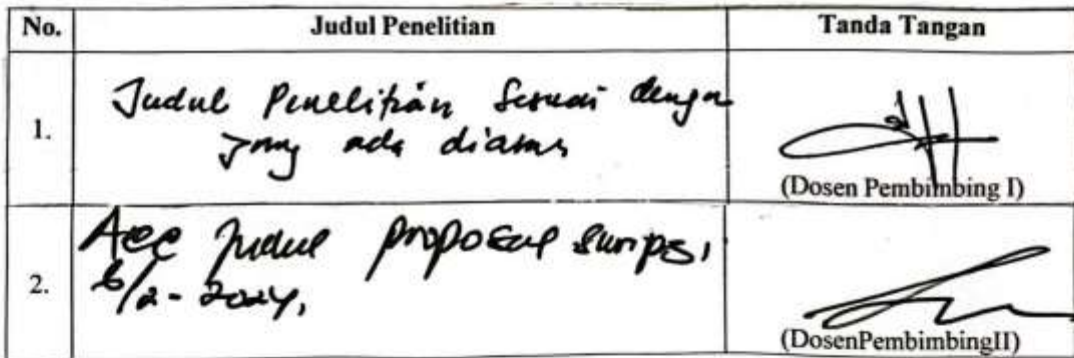 No. Judul Penelitian Tanda Tangan
1. Judul Penelitian Sesuai dengan
yang ada diatas
(Dosen Pembimbing I)
2. Acc judul proposal skripsi
6/2-2024,
(DosenPembimbingII)